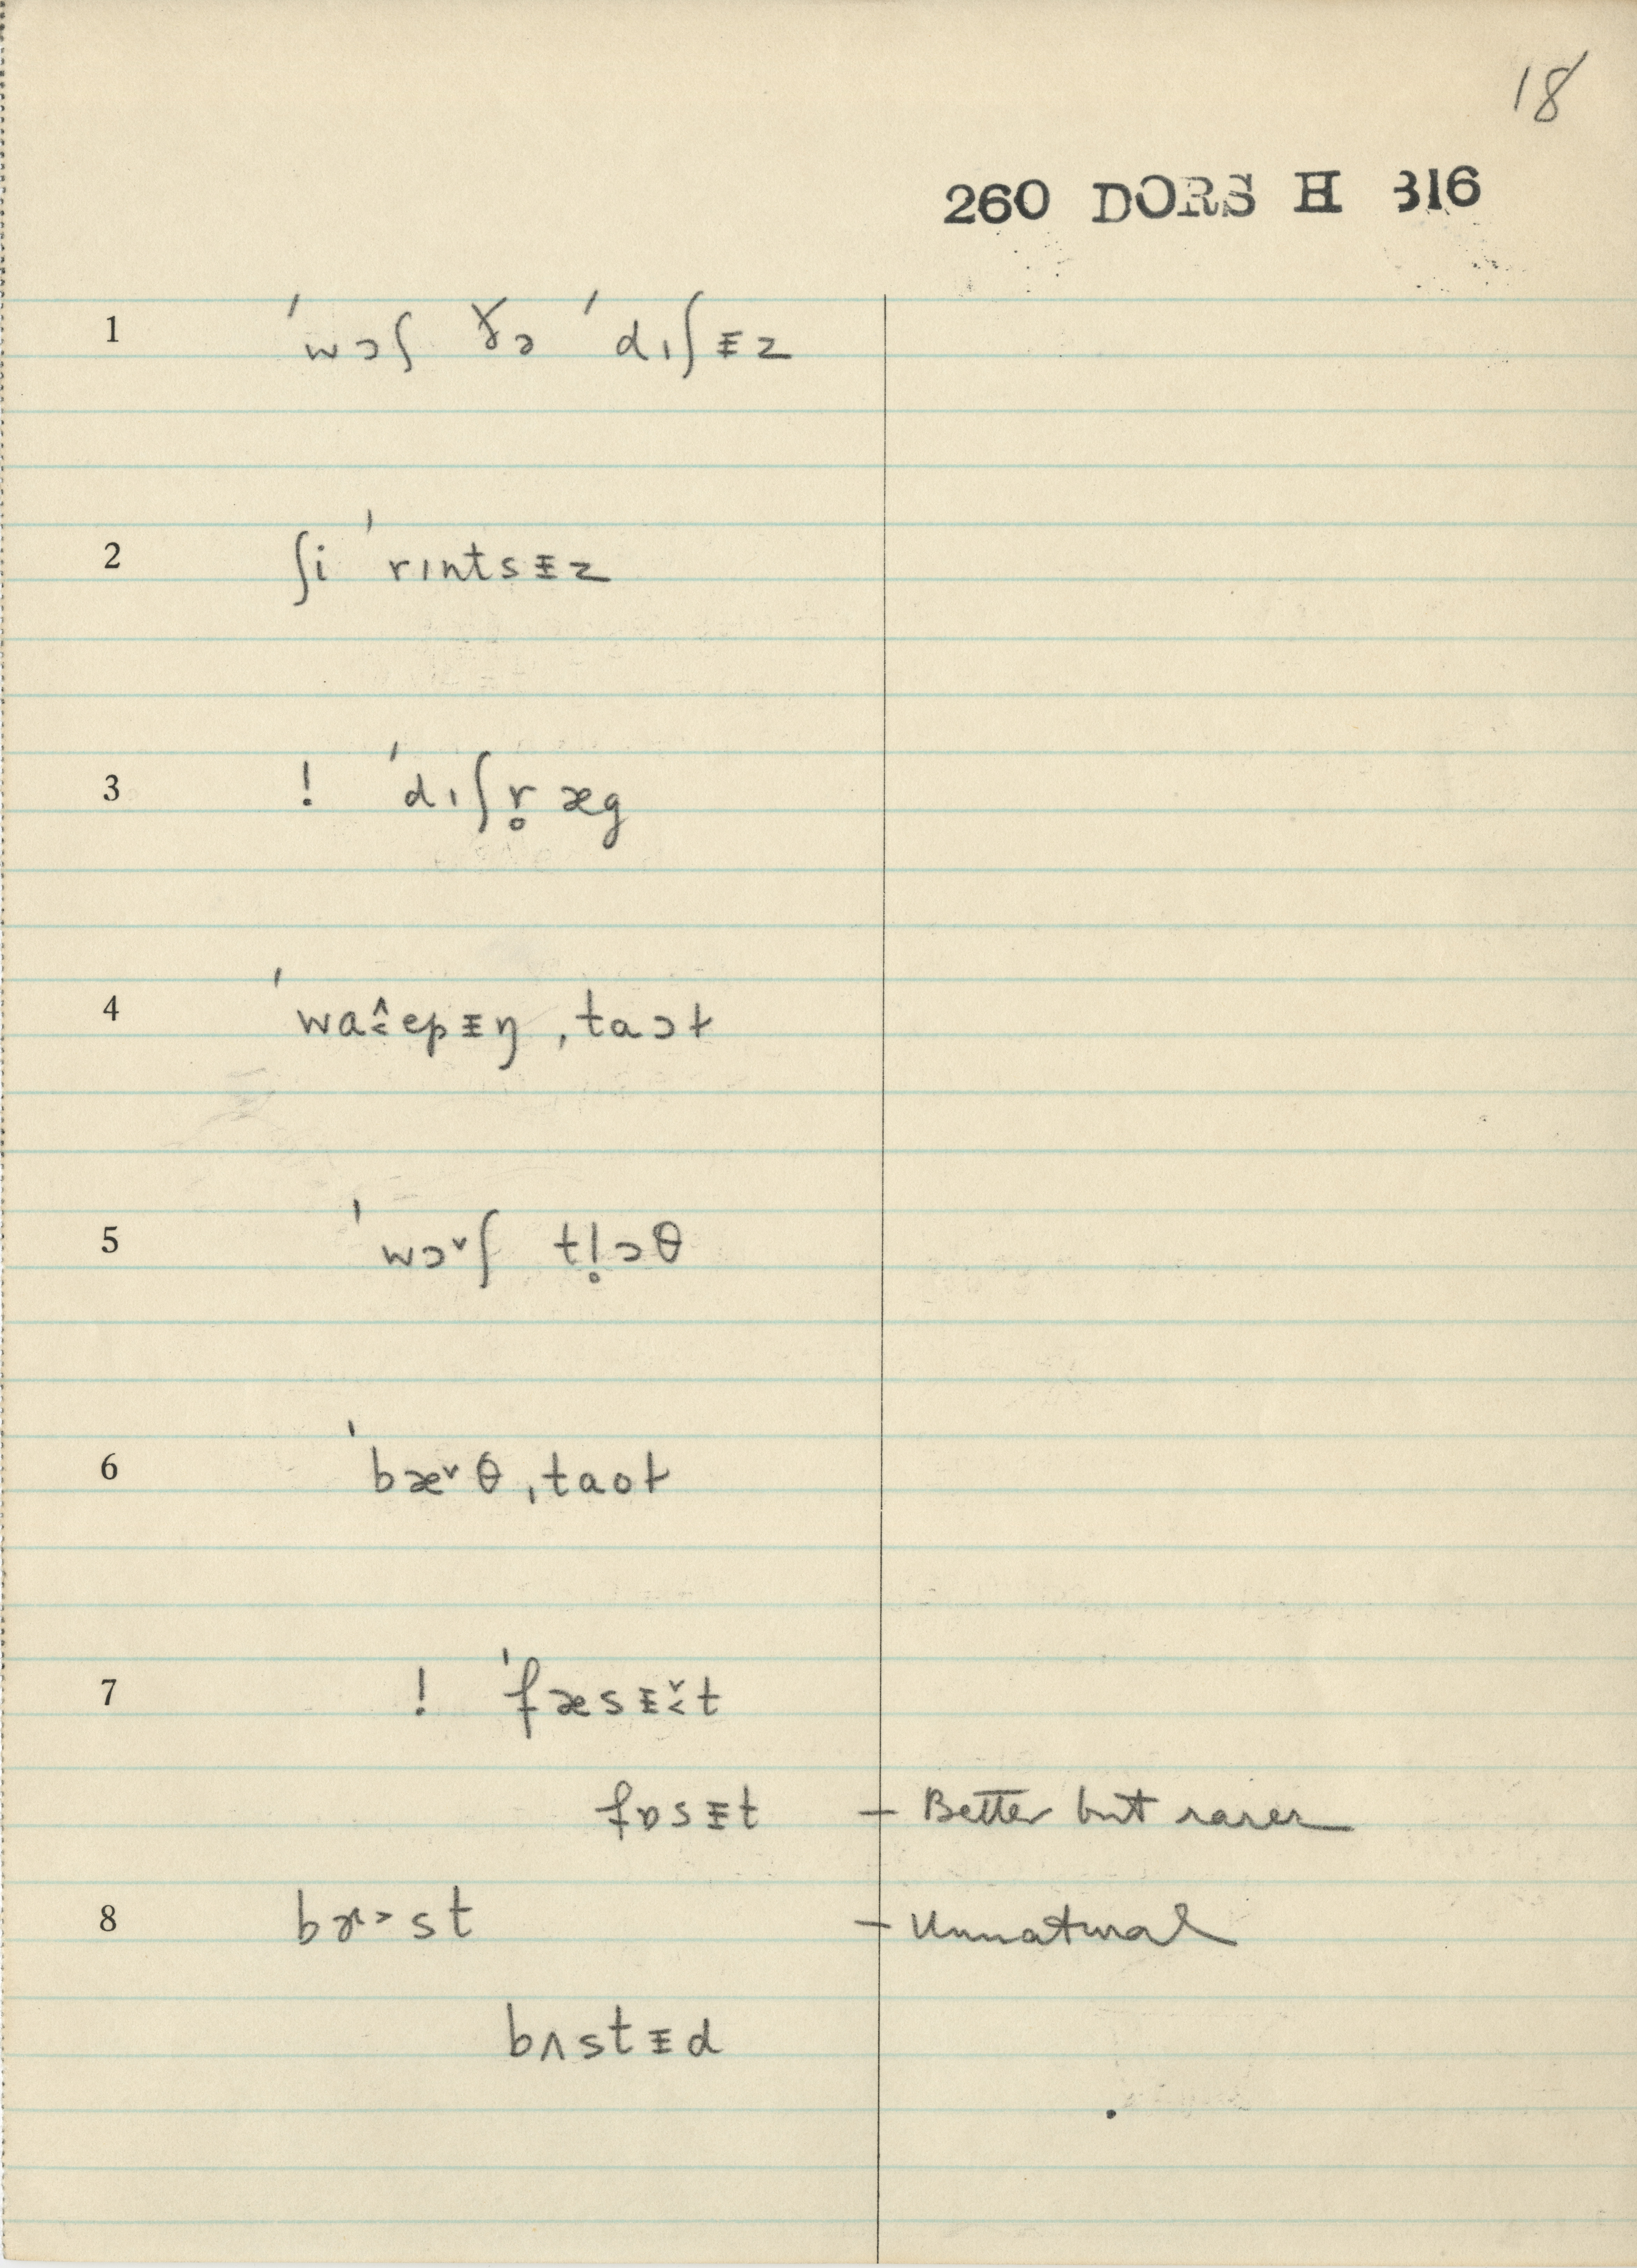 18
260 DORS H 316
1 ˈwɔʃ ðə ˈdɪʃᵻz
2 ʃi ˈrɪntsᵻz
3 ! ˈdɪʃr̥æg
4 ˈwaɛ̭˂pᵻŋ ˌtaɔɫ
5 ˈwɔ˅ʃ tl̥ɔθ
6 ˈbæ˅θ ˌtaoɫ
7 ! ˈfæsᵻ̬˂t
fɒsᵻt — Better but rarer
8 bɝ˃st — Unnatural
bʌstᵻd